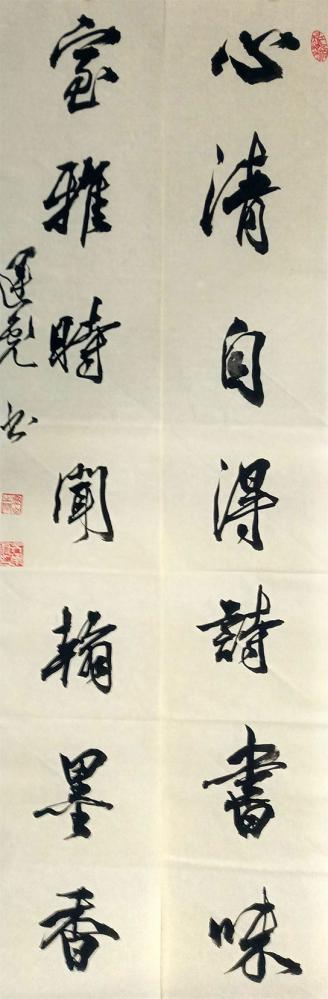 心清自得詩書味
室雅時聞翰墨香
運堯书